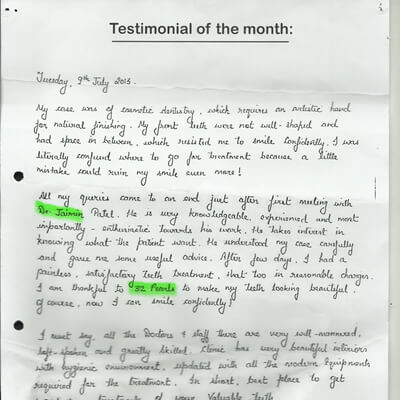 Testimonial of the month:
Tuesday, 9th July 2013.
My case was of cosmetic dentistry, which requires an artistic hand
for natural finishing. My front teeth were not well-shaped and
had space in between, which resisted me to smile confidently. I was
literally confused where to go for treatment because a little
mistake could ruin my smile even more!
All my queries came to an end just after first meeting with
Dr. Jaimin Patel. He is very knowledgeable, experienced and most
importantly - enthusiastic towards his work. He takes interest in
knowing what the patient want. He understood my case carefully
and gave me some useful advice. After few days, I had a
painless, satisfactory teeth treatment, that too in reasonable charges.
I am thankful to 32 Pearls to make my teeth looking beautiful.
Of course, now I can smile confidently!
I must say, all the Doctors & staff there are very well-mannered,
soft-spoken and greatly skilled. Clinic has very beautiful interiors
with hygienic environment, updated with all the modern Equipments
required for the treatment. In short, best place to get
treatments of your Valuable Teeth